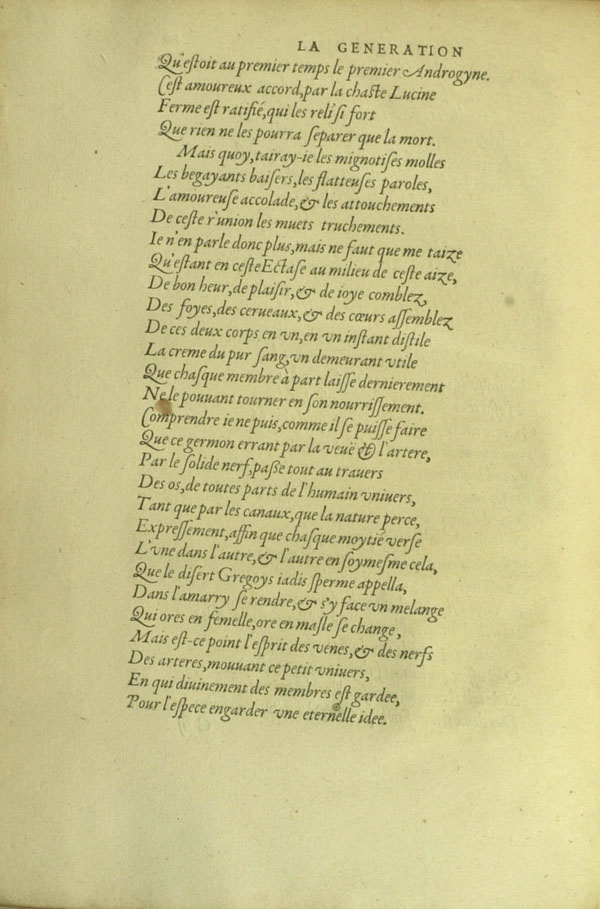 LA GENERATION
Qu'estoit au premier temps le premier Androgyne.
C'est amoureux accord, par la chaste Lucine
Ferme est ratifié, qui les reli' si fort
Que rien ne les pourra separer que la mort.
Mais quoy, tairay-ie les mignotises molles
Les begayants baisers, les flatteuses paroles,
L'amoureuse accolade, & les attouchements
De ceste r'union les muets truchements.
Ie n'en parle donc plus, mais ne faut que me taize
Qu'estant en ceste Ectase au milieu de ceste aize,
De bon heur, de plaisir, & de ioye comblez,
Des foyes, des cerueaux, & des cœurs assemblez
De ces deux corps en vn, en vn instant distile
La creme du pur sang, vn demeurant vtile
Que chasque membre à part laisse dernierement
Ne le pouuant tourner en son nourrissement.
Comprendre ie ne puis, comme il se puisse faire
Que ce germon errant par la veuë & l'artere,
Par le solide nerf, passe tout au trauers
Des os, de toutes parts de l'humain vniuers,
Tant que par les canaux, que la nature perce,
Expressement, affin que chasque moytié verse
L'vne dans l'autre, & l'autre en soymesme cela,
Que le disert Gregoys iadis sperme appella,
Dans l'amarry se rendre, & s'y face vn melange
Qui ores en femelle, ore en masle se change,
Mais est-ce point l'esprit des venes, & des nerfs
Des arteres, mouuant ce petit vniuers,
En qui diuinement des membres est gardee,
Pour l'espece engarder vne eternelle idee.